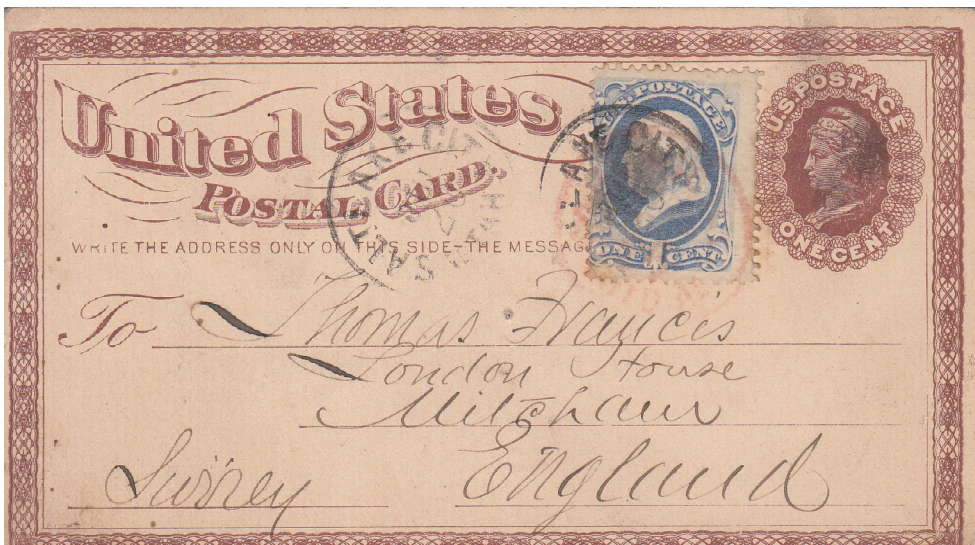 United States
POSTAL CARD.
WRITE THE ADDRESS ONLY ON THIS SIDE - THE MESSAG
U.S. POSTAGE
ONE CENT
POSTAGE
ONE CENT
SALT LAKE CITY
LAKE CITY
To Thomas Francis
London House
Mitcham
Surrey England